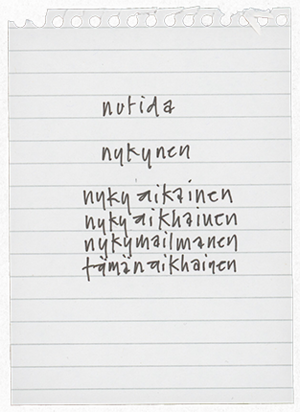 nutida
nykynen
nyky aikainen
nyky aikhainen
nykymailmanen
tämän aikhainen